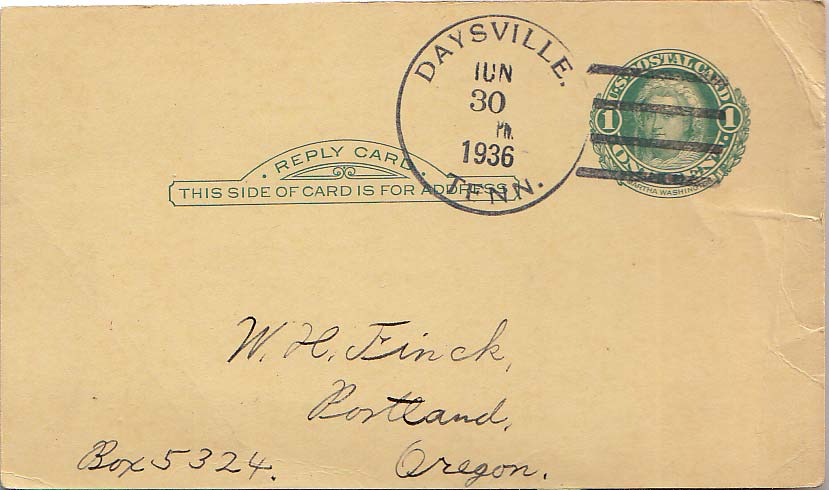 DAYSVILLE.
JUN
30
PM.
1936
TENN.
U.S. POSTAL CARD
1 1
ONE CENT
MARTHA WASHINGTON
REPLY CARD.
THIS SIDE OF CARD IS FOR ADDRESS
W. H. Finck,
Portland,
Box 5324. Oregon.